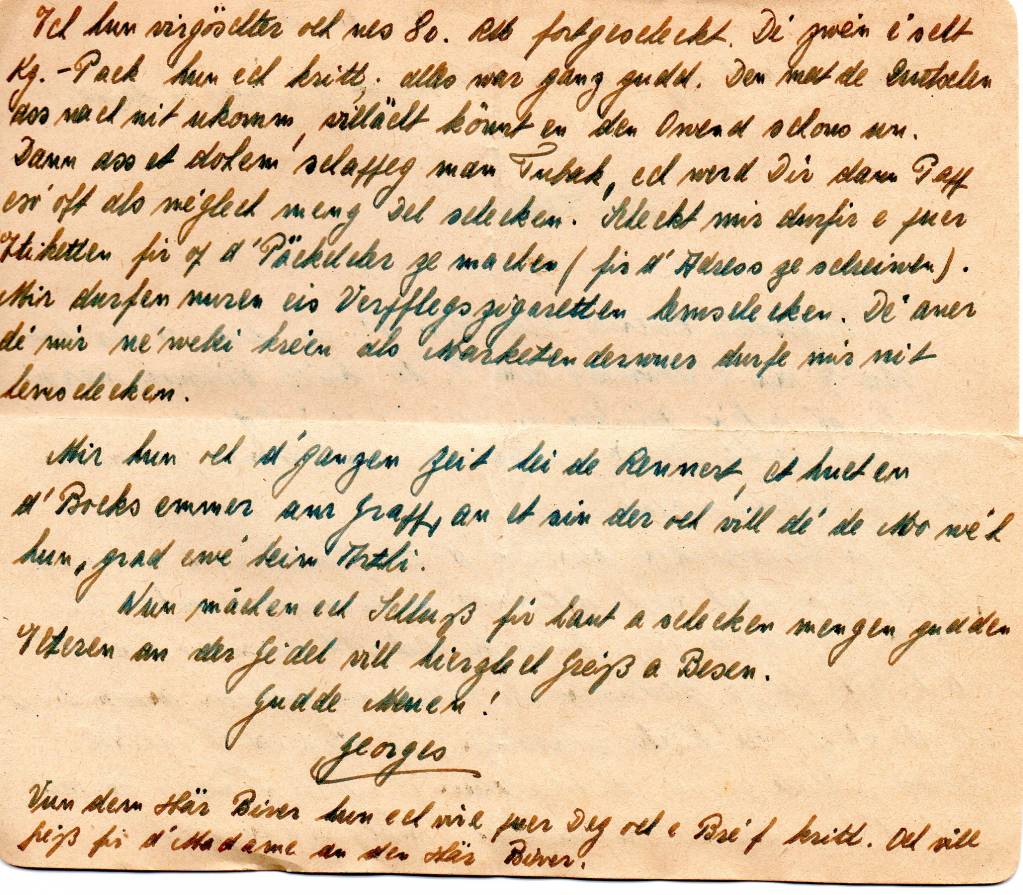 Ech hun virgöschter och nes 80. RM fortgescheckt. Di zwén é selt
Kg.-Pack hun ech kritt. alles war ganz gudd. Den mat de Quetschen
ass nach nit ukomm, villäicht könnt en den Owend schons un.
Dann ass et dohem schaffeg mam Tubak, ech werd Dir dann Paff
esó oft als méglech meng Del schecken. Scheckt mir durfir e puer
Etiketten fir op d'Päckelcher ze machen (fir d'Adress ze schreiwen).
Mir durfen nuren eis Verpflegszigaretten hemschecken. Dé aner
dé mir néwebei kréien als Marketenderwuer durfe mir nit
hemschecken.
Mir hun och d'ganzen Zeit hei de Rennert, et huet en
d'Bocks emmer am Graff, an et sin der och vill dé de Mo wéh
hun, grad ewé beim Metti.
Nun máchen ech Schluß fir haut a schecken mengen gudden
Elteren an der Geidel vill hierzlech Gréiß a Besen.
Gudde Muen!
Georges
Vun dem Här Biver hun ech virun puer Deg och e Bréf kritt. Och vill
Gréiß fir d'Madame an den Här Biver.